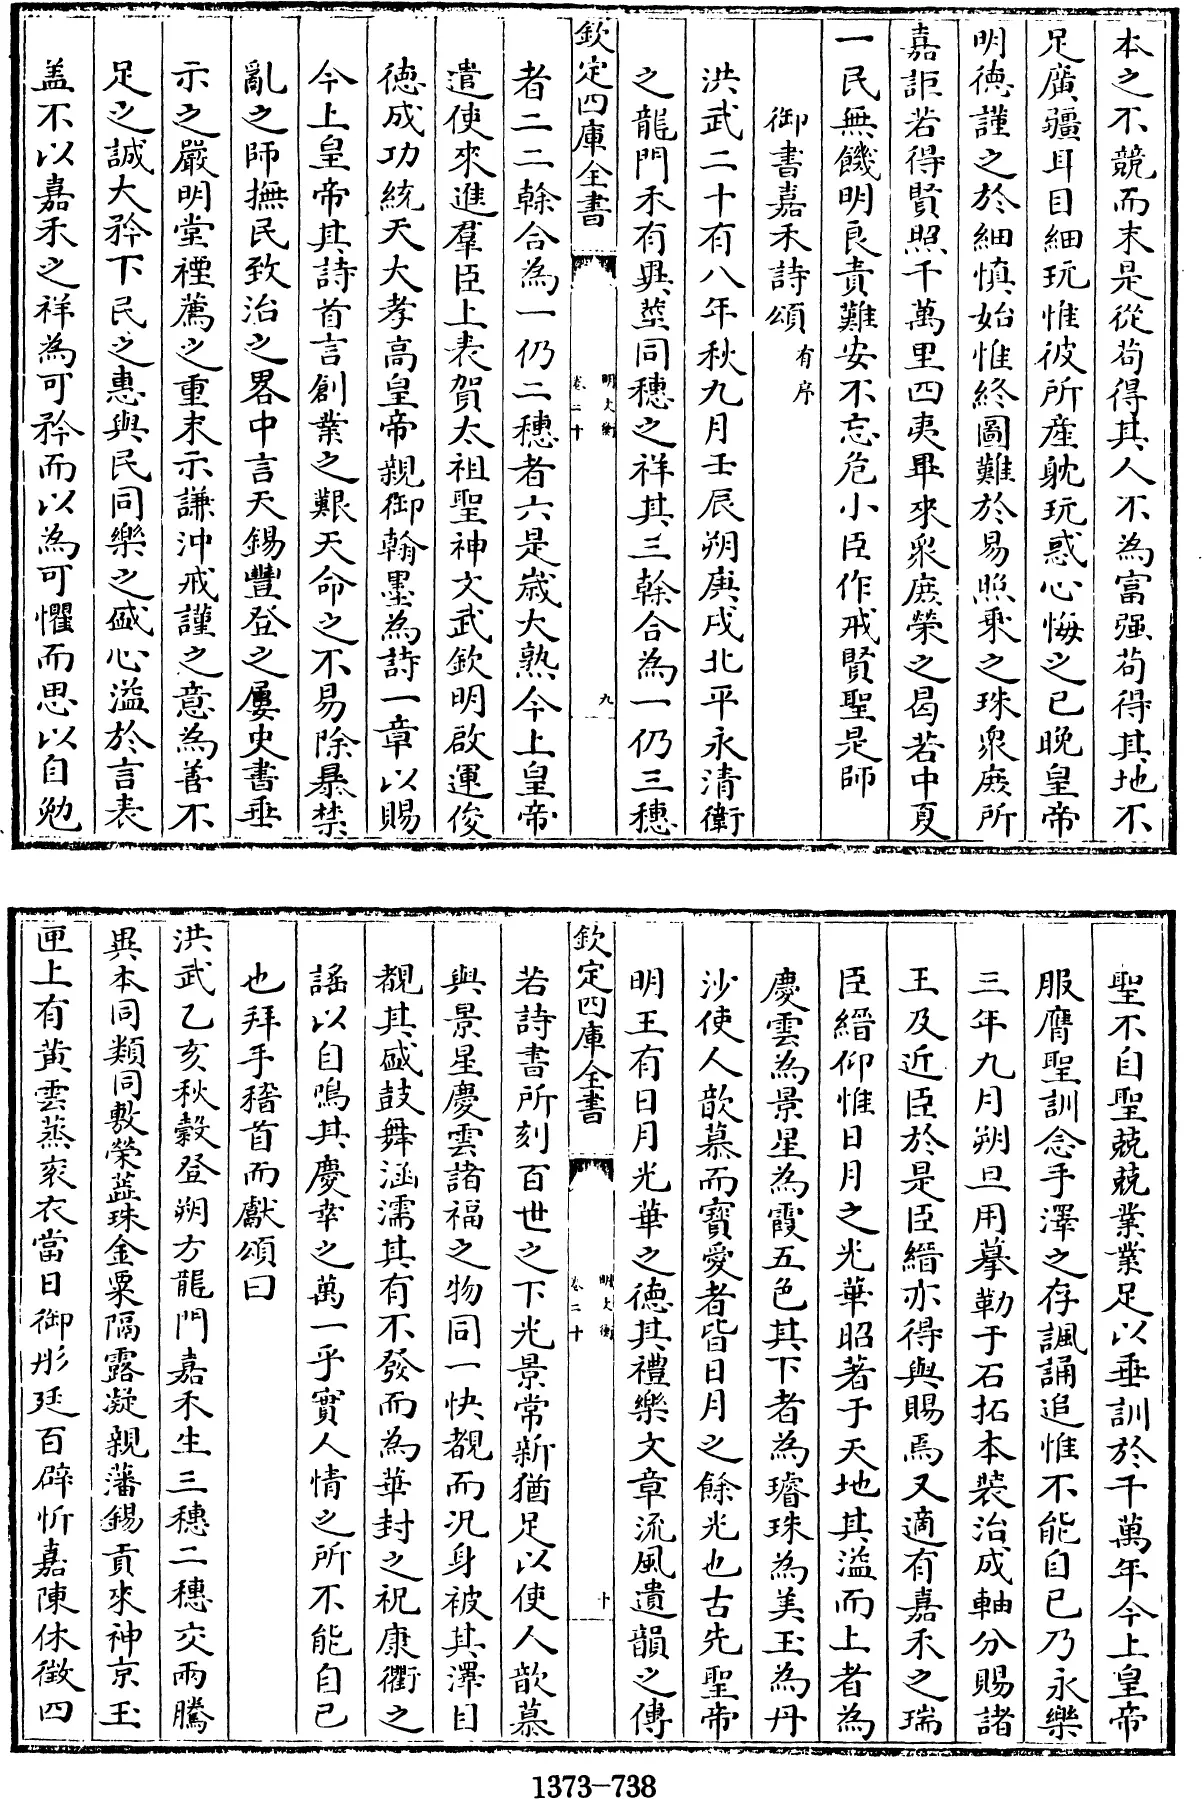 本之不競而末是從苟得其人不為富强苟得其地不
足廣疆耳目細玩惟彼所産躭玩惑心悔之已晚皇帝
明徳謹之於細慎始惟終圖難於易照乗之珠衆庻所
嘉詎若得賢照千萬里四夷畢來衆庻榮之曷若中夏
一民無饑明良責難安不忘危小臣作戒賢聖是師
御書嘉禾詩頌有序
洪武二十有八年秋九月壬辰朔庚戌北平永清衛
之龍門禾有異莖同穗之祥其三榦合為一仍三穗
欽定四庫全書
明文衡
卷二十
九
者二二榦合為一仍二穗者六是歳大熟今上皇帝
遣使來進羣臣上表賀太祖聖神文武欽明啟運俊
徳成功統天大孝髙皇帝親御翰墨為詩一章以賜
今上皇帝其詩首言創業之艱天命之不易除暴禁
亂之師撫民致治之畧中言天錫豐登之屢史書垂
示之嚴明堂禋薦之重末示謙沖戒謹之意為善不
足之誠大矜下民之惠與民同樂之盛心溢於言表
盖不以嘉禾之祥為可矜而以為可懼而思以自勉
聖不自聖兢兢業業足以垂訓於千萬年今上皇帝
服膺聖訓念手澤之存諷誦追惟不能自已乃永樂
三年九月朔旦用摹勒于石拓本装治成軸分賜諸
王及近臣於是臣縉亦得與賜焉又適有嘉禾之瑞
臣縉仰惟日月之光華昭著于天地其溢而上者為
慶雲為景星為霞五色其下者為璿珠為美玉為丹
沙使人歆慕而寳愛者皆日月之餘光也古先聖帝
明王有日月光華之徳其禮樂文章流風遺韻之傳
欽定四庫全書
明文衡
卷二十
十
若詩書所刻百世之下光景常新猶足以使人歆慕
與景星慶雲諸福之物同一快覩而況身被其澤目
覩其盛鼓舞涵濡其有不發而為華封之祝康衢之
謡以自鳴其慶幸之萬一乎實人情之所不能自已
也拜手稽首而獻頌曰
洪武乙亥秋穀登朔方龍門嘉禾生三穗二穗交兩騰
異本同類同敷榮蓝珠金粟隔露凝親藩錫貢來神京玉
匣上有黄雲蒸衮衣當日御彤廷百辟忻嘉陳休徴四
1373-738